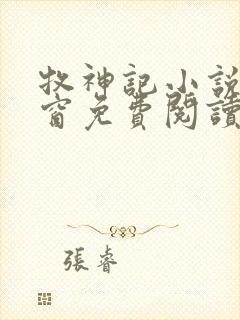 牧神記小說
窗免費閱讀
張睿